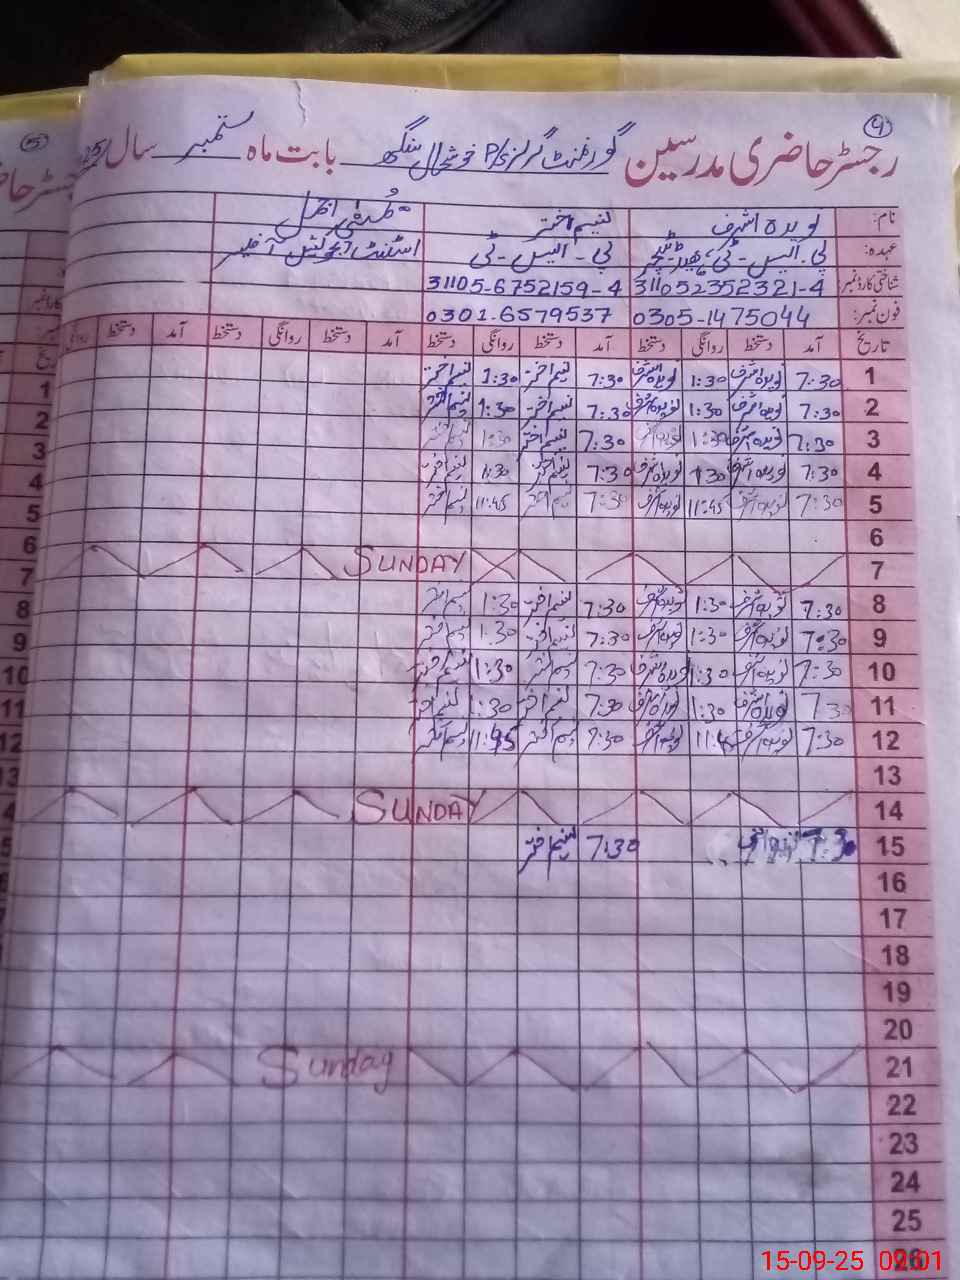 ۴
رجسٹر حاضری مدرسین گورنمنٹ گرلز P/S خوشحال سنگھ بابت ماہ ستمبر سال 25
نام: نویدہ اشرف نسیم اختر
عہدہ: پی۔ایس۔ٹی، ہیڈ ٹیچر پی۔ایس۔ٹی اسسٹنٹ ایجوکیشن آفیسر
شناختی کارڈ نمبر: 311052352321-4 31105-6752159-4
فون نمبر: 0305-1475044 0301-6579537
تاریخ آمد دستخط روانگی دستخط آمد دستخط روانگی دستخط آمد دستخط روانگی دستخط آمد دستخط
1 7:30 نویدہ اشرف 1:30 نویدہ اشرف 7:30 نسیم اختر 1:30 نسیم اختر
2 7:30 نویدہ اشرف 1:30 نویدہ اشرف 7:30 نسیم اختر 1:30 نسیم اختر
3 7:30 نویدہ اشرف 1:30 نویدہ اشرف 7:30 نسیم اختر 1:30 نسیم اختر
4 7:30 نویدہ اشرف 1:30 نویدہ اشرف 7:30 نسیم اختر 1:30 نسیم اختر
5 7:30 نویدہ اشرف 11:45 نویدہ اشرف 7:30 نسیم اختر 11:45 نسیم اختر
6
7 SUNDAY
8 7:30 نویدہ اشرف 1:30 نویدہ اشرف 7:30 نسیم اختر 1:30 نسیم اختر
9 7:30 نویدہ اشرف 1:30 نویدہ اشرف 7:30 نسیم اختر 1:30 نسیم اختر
10 7:30 نویدہ اشرف 1:30 نویدہ اشرف 7:30 نسیم اختر 1:30 نسیم اختر
11 7:30 نویدہ اشرف 1:30 نویدہ اشرف 7:30 نسیم اختر 1:30 نسیم اختر
12 7:30 نویدہ اشرف 11:45 نویدہ اشرف 7:30 نسیم اختر 11:45 نسیم اختر
13
14 SUNDAY
15 7:30 7:30 نسیم اختر
16
17
18
19
20
21 Sunday
22
23
24
25
26
15-09-25 09:01